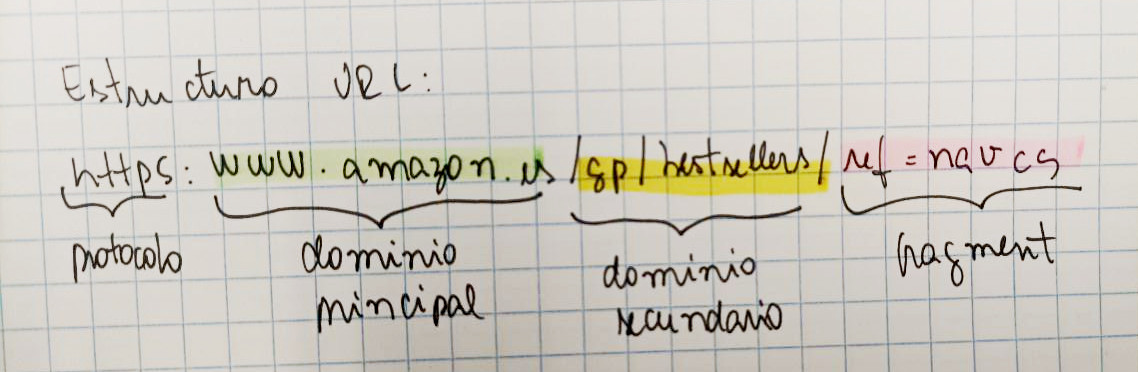 Estructura URL:
https: www.amazon.es /gp/bestsellers/ ref=nav cs
protocolo dominio principal dominio secundario fragment